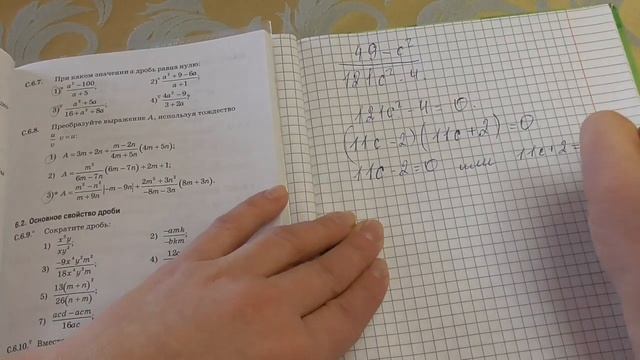 С.6.7. При каком значении a дробь равна нулю:
1)° a² − 100 / a + 5; 2)° a² + 9 − 6a / a + 1;
3)° a² + 5a / 16 + a² + 8a; 4)° 4a² − 9 / 3 + 2a?
С.6.8. Преобразуйте выражение A, используя тождество
u / v · v = u:
1) A = 3m + 2n + m − 2n / 4m + 5n (4m + 5n);
2) A = m³ / 6m − 7n (6m − 7n) + 2m + 1;
3)* A = m² − n² / m + 9n |−m − 9n| + 2m³ + 3n³ / −8m − 3n (8m + 3n).
6.2. Основное свойство дроби
С.6.9.° Сократите дробь:
1) x²y / xy²; 2) −amk / −bkm;
3) −9x⁴y²m² / 18x⁴y³m; 4) 12c
5) 13(m + n)² / 26(n + m);
7) acd − acm / 16ac;
С.6.10.°
49 − c²
121c² − 4.
121c² − 4 = 0.
(11c − 2)(11c + 2) = 0
11c − 2 = 0 или 11c + 2 =